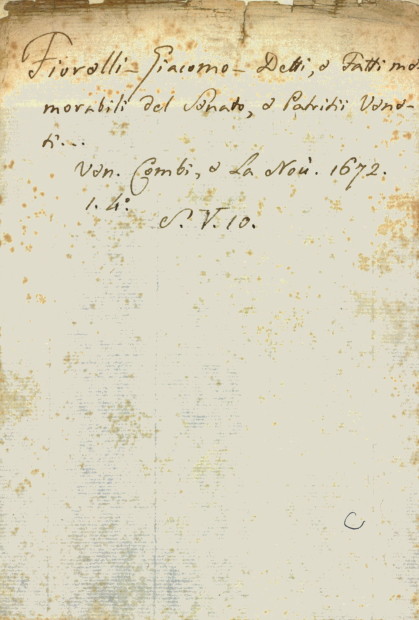 Fiorelli- Giacomo- Detti, e Fatti me-
morabili del Senato, e Patritii Vene-
ti...
Ven. Combi, e La Noù. 1672.
1. 4°
S. V. 10.
C